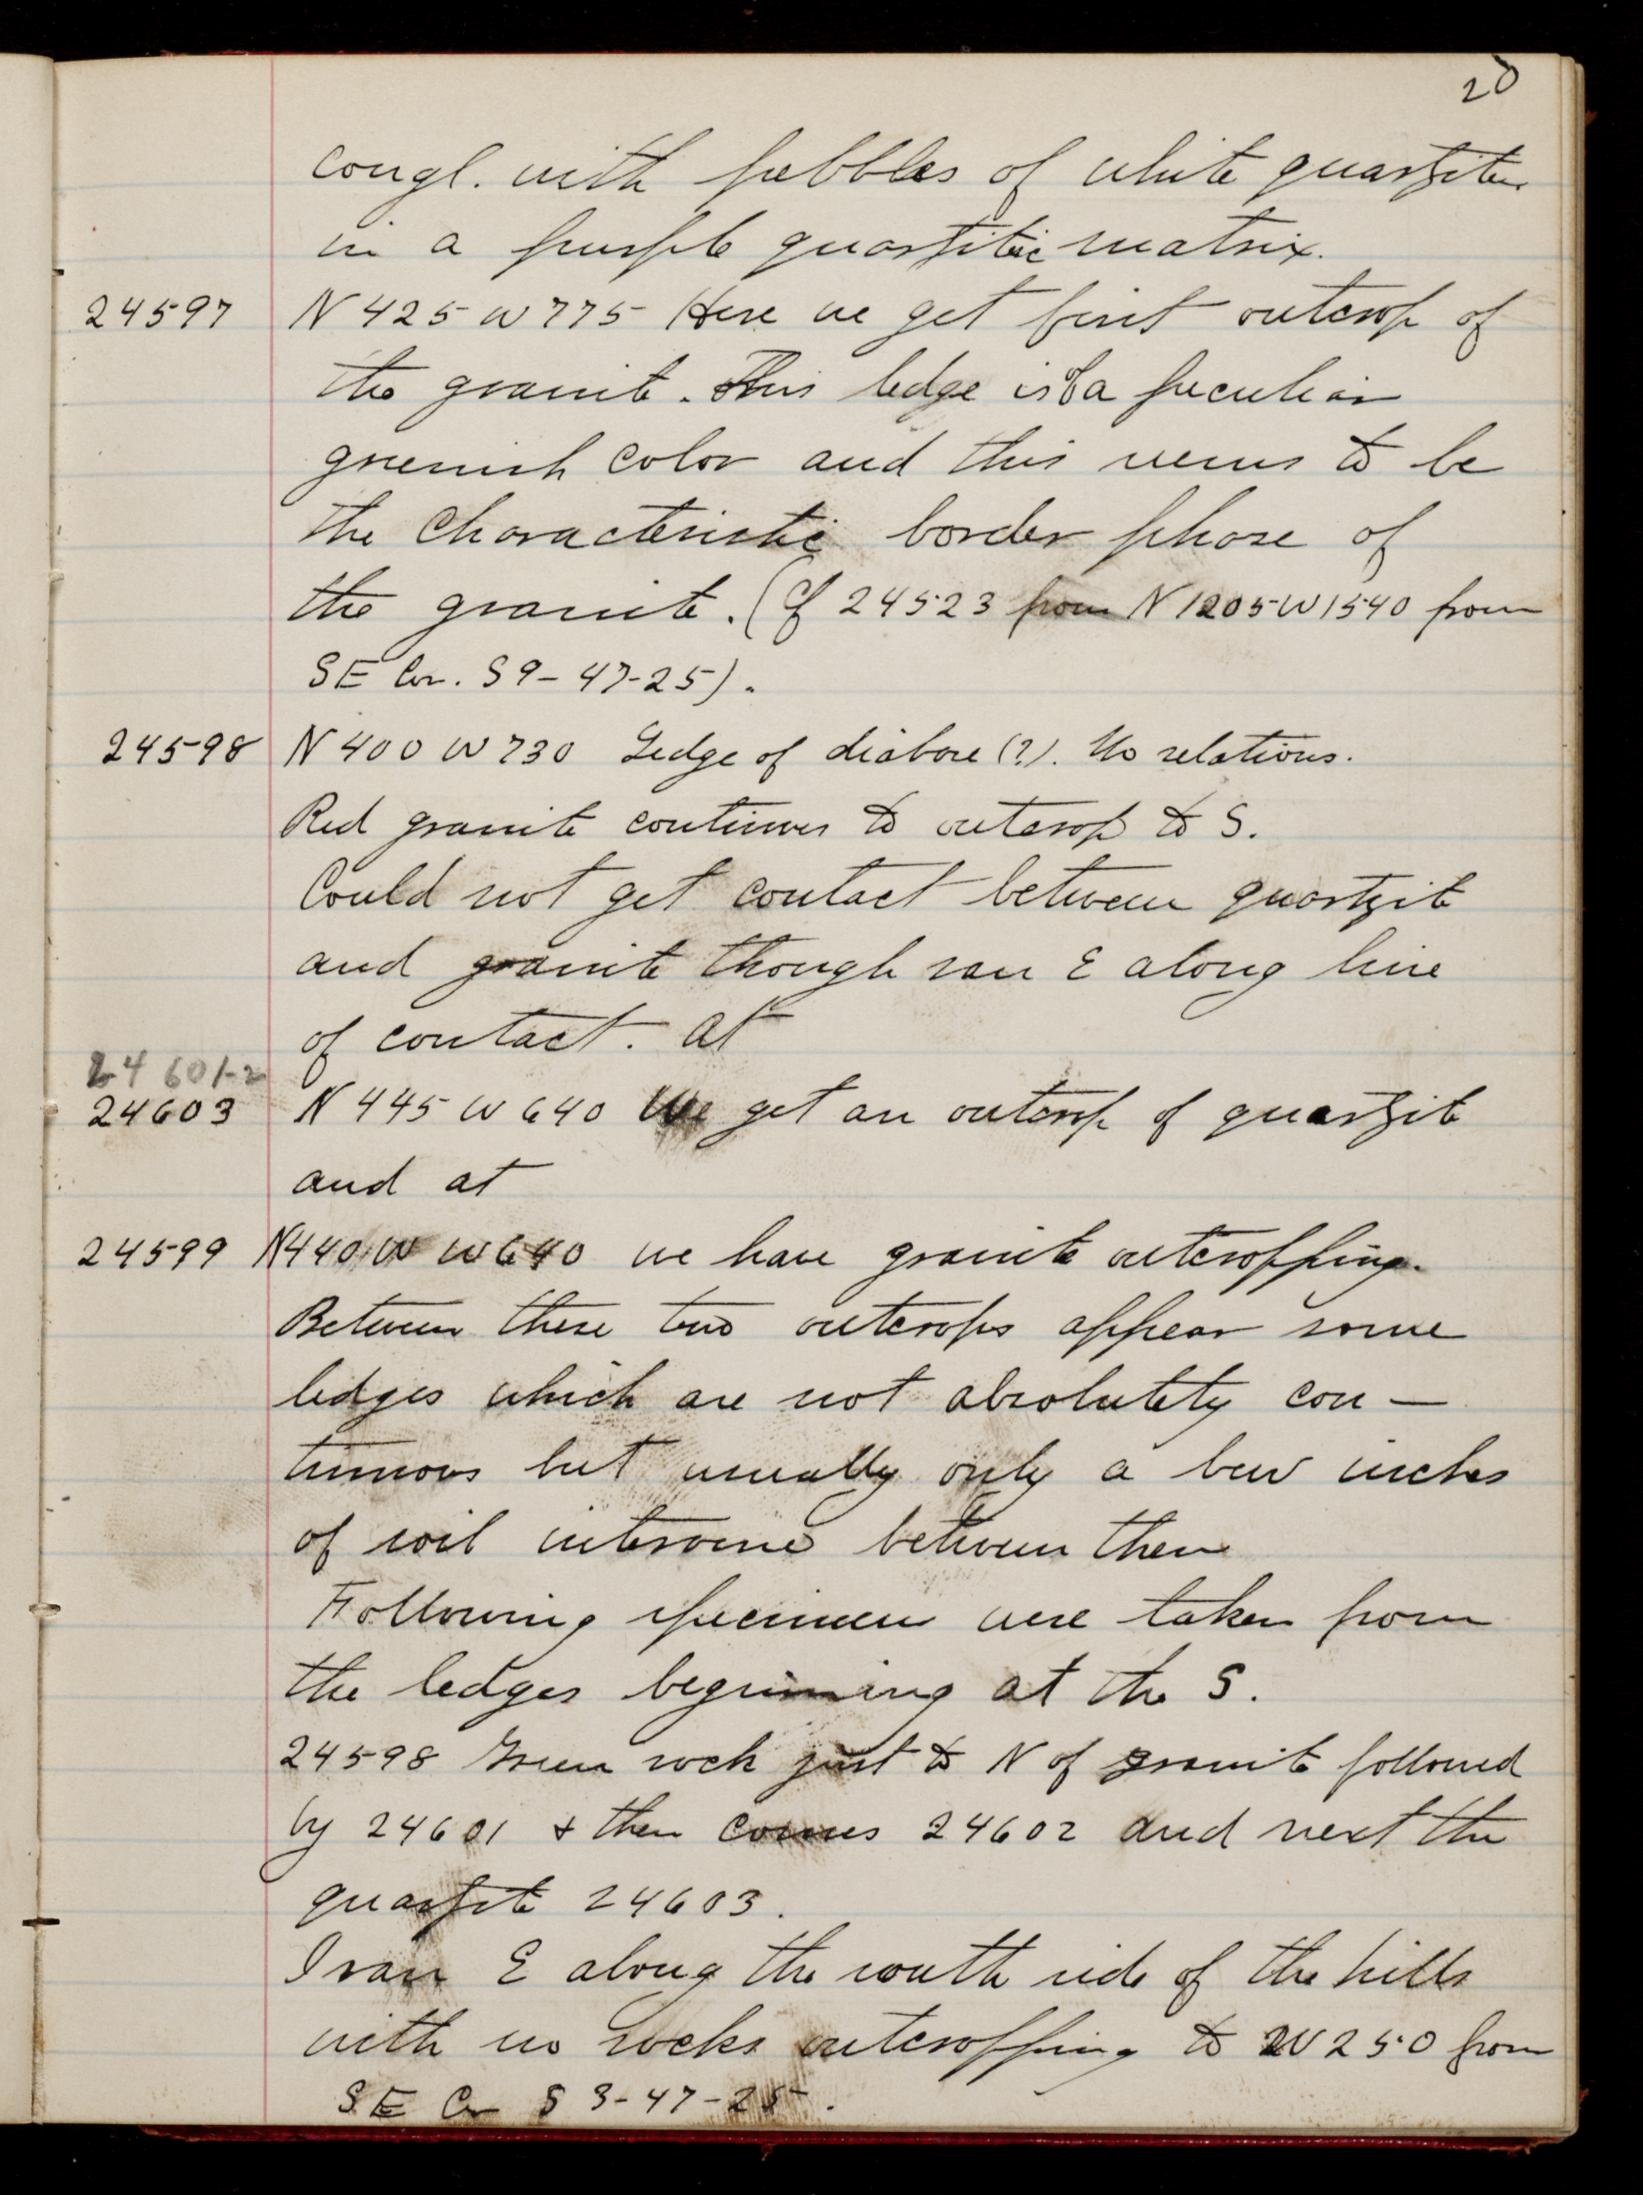 20
congl. with pebbles of white quartzite
in a purple quartzitic matrix.
24597 N 425 W 775 Here we get first outcrop of
the granite. This ledge is of a peculiar
greenish color and this seems to be
the characteristic border phase of
the granite. (Cf 24523 from N 1205 W 1540 from
SE Cor. S 9-47-25).
24598 N 400 W 730 Ledge of diabase (?). No relations.
Red granite continues to outcrop to S.
Could not get contact between quartzite
and granite though ran E along line
of contact. At
24601-2
24603 N 445 W 640 We get an outcrop of quartzite
and at
24599 N 440 W W 640 we have granite outcropping.
Between these two outcrops appear some
ledges which are not absolutely con-
tinuous but usually only a few inches
of soil intervene between them
Following specimens were taken from
the ledges beginning at the S.
24598 Green rock just to N of granite followed
by 24601 & then comes 24602 and next the
quartzite 24603.
I ran E along the south side of the hills
with no rocks outcropping to W 250 from
SE Cor S 3-47-25.